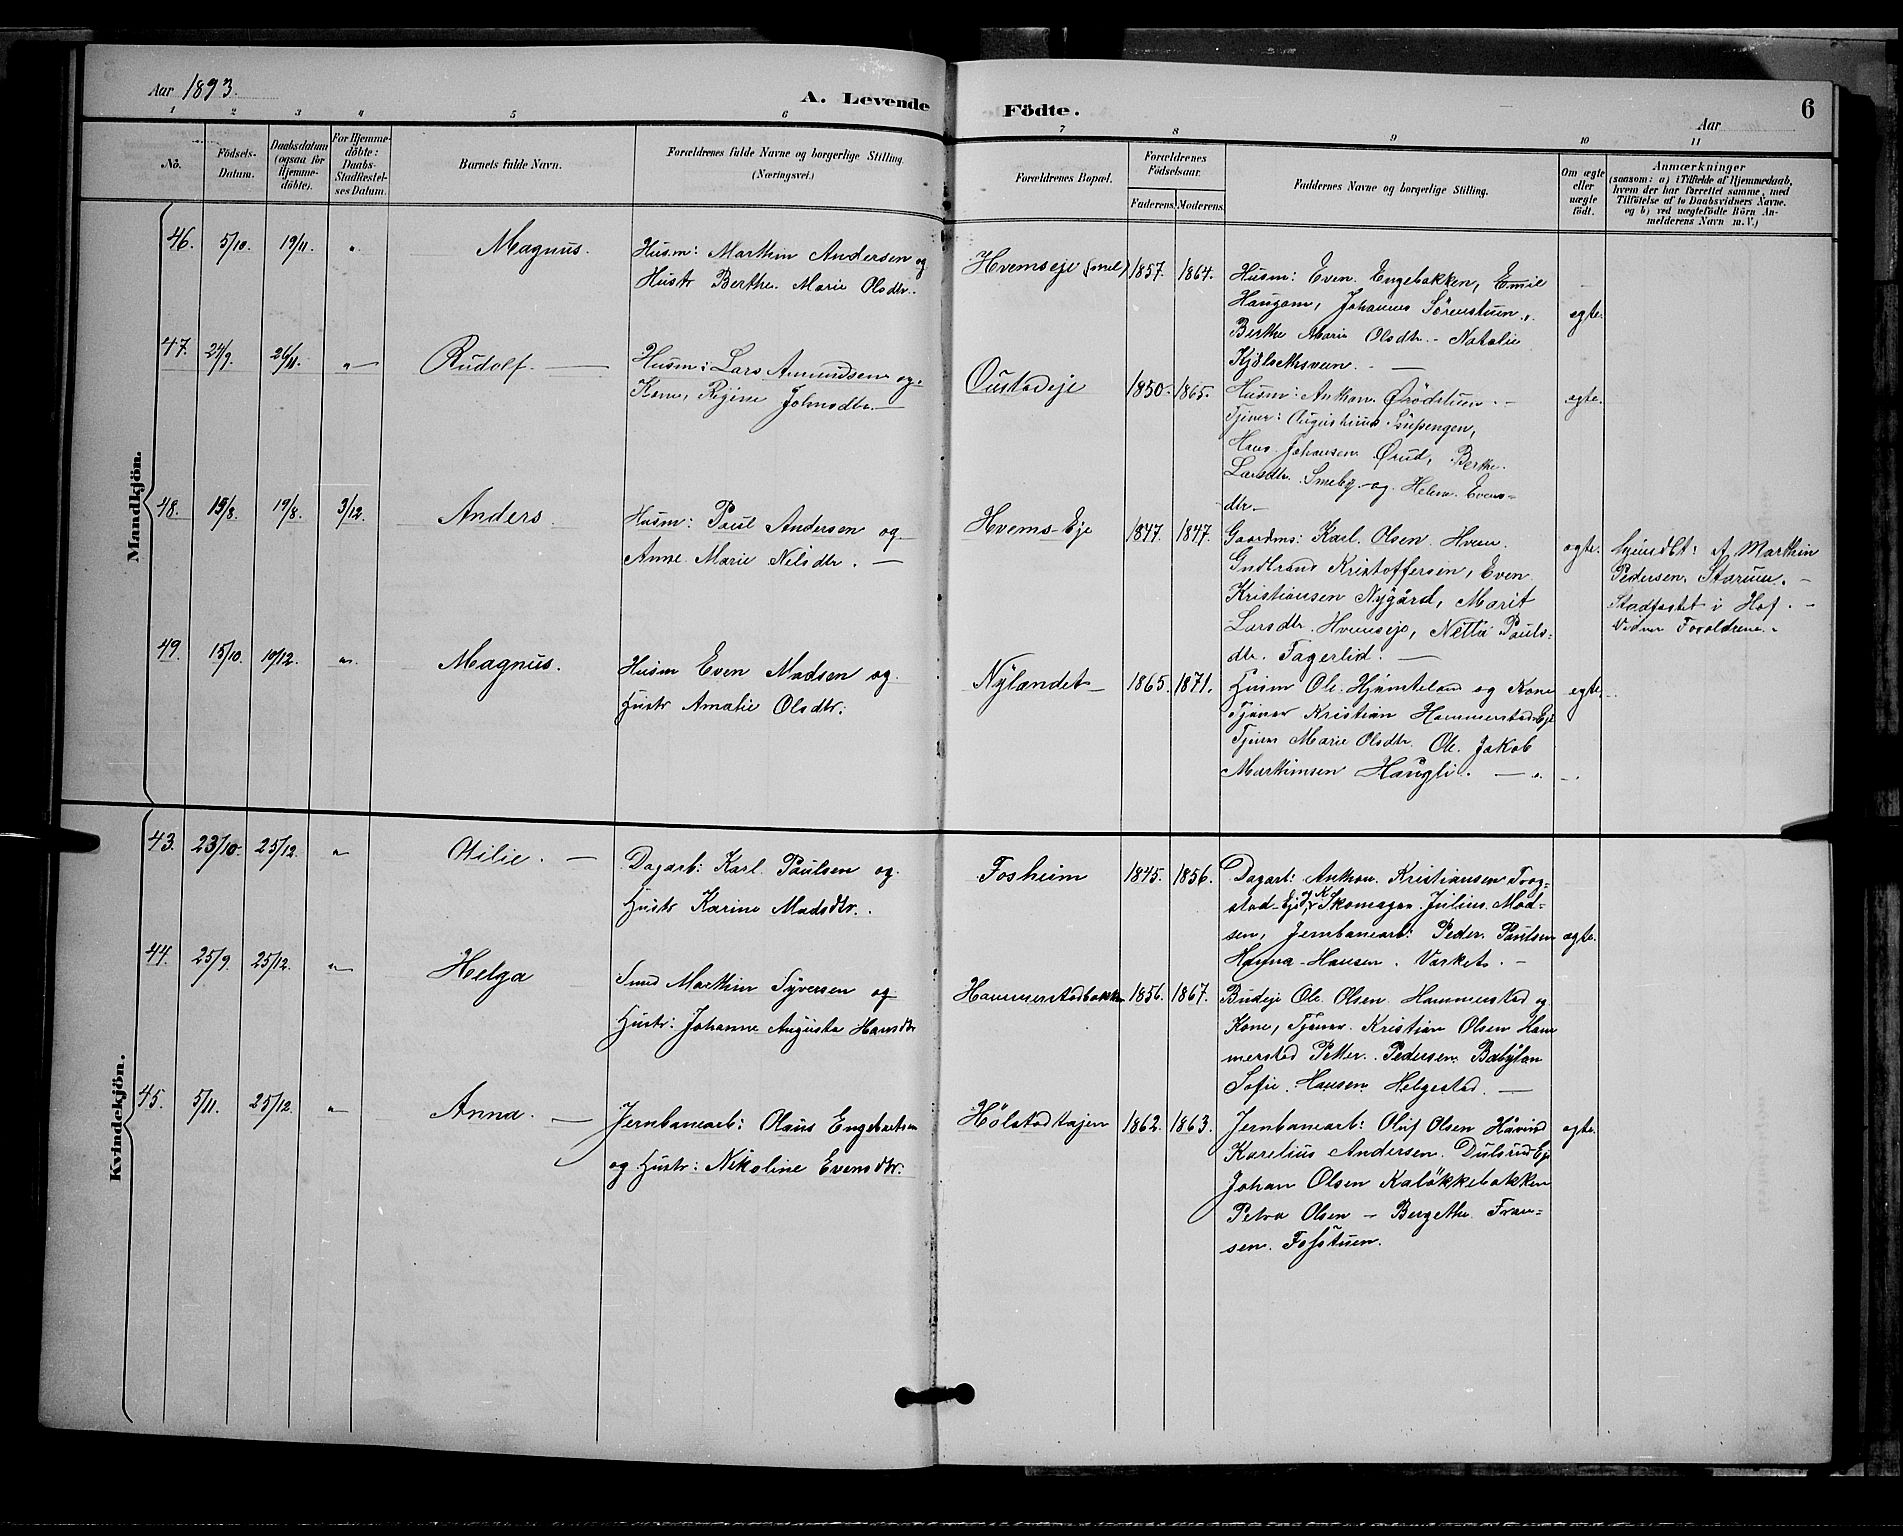 Aar 1893.
A. Levende
Födte.
6
Aar
1 2 3 4 5 6 7 8 9 10 11
No.
Födsels-
Datum.
Daabsdatum
(ogsaa for
Hjemme-
döbte).
For Hjemme-
döbte:
Daabs-
Stadfæstel-
ses Datum.
Barnets fulde Navn.
Forældrenes fulde Navne og borgerlige Stilling.
(Næringsvei.)
Forældrenes Bopæl.
Forældrenes
Födselsaar.
Faderens. Moderens.
Faddernes Navne og borgerlige Stilling.
Om ægte
eller
uægte
födt.
Anmærkninger
(saasom: a) i Tilfælde af Hjemmedaab,
hvem der har forrettet samme, med
Tilföielse af to Daabsvidners Navne.
og b) ved uægtefödte Börn An-
melderens Navn m.V.)
Mandkjön.
46. 5/10. 19/11. " Magnus.
Husm: Marthin Andersen og
Hustr Berthe Marie Olsdtr.
Hvemseje 1857. 1864.
Husm: Even Engebakken, Emil
Haugom, Johannes Sörenstuen,
Berthe Marie Olsdtr. - Natalie
egte.
47. 24/9. 26/11. " Rudolf.
Husm: Lars Amundsen og
Kone, Regine Johnsdtr.
1850. 1865.
Husm: Anthon
Tjener: Augustinus
Hans Johansen Ørud, Berthe
Larsdtr. Smeby og Helene Evens-
dtr.
egte.
48. 19/8. 3/12. Anders.
Husm: Paul Andersen og
Anne Marie Nilsdtr.
Hvems-Eje 1847. 1847.
Gaardms: Karl Olsen Hvem
Gudbrand Kristoffersen, Even
Kristiansen Nygård, Marit
Larsdtr. Hvemseje, Netta Pauls-
dtr. Fagerlid.
egte.
hjemdbt: af Marthin
Pedersen
Stadfæstet i Hof.
Vidner Forældrene.
49. 15/10. 10/12. " Magnus.
Husm Even Madsen og
Hustr Amalie Olsdtr.
Nylandet 1865. 1871.
Husm Ole og Kone
Tjener Kristian Hammerstad Eje
Tjener Marie Olsdtr. Ole Jakob
Marthinsen Haugli.
egte.
Kvindekjön.
43. 23/10. 25/12. " Otilie.
Dagarb: Karl Paulsen og
Hustr Karine Madsdtr.
Fosheim 1845. 1856.
Dagarb: Anthon Kristiansen Trog-
stad-Eje og K Skomager Julius Mad-
sen, Jernbanearb: Peder Paulsen
Hanna Hansen
egte.
44. 25/9. 25/12. " Helga
Smed Marthin Syversen og
Hustr: Johanne Augusta Hansdtr
Hammerstadbakken 1856. 1867.
Budeje Ole Olsen Hammerstad og
Kone, Tjener Kristian Olsen Ham
merstad Petter Pedersen Babylon
Sofie Hansen Helgestad.
45. 5/11. 25/12. " Anna.
Jernbanearb: Olaus Engebretsen
og Hustr: Nikoline Evensdtr.
1862. 1863.
Jernbanearb: Oluf Olsen
Karelius Andersen Dulsrud Eje
Johan Olsen Kalökkebakken
Petra Olsen - Bergethe Fran-
sen. Fosstuen.
egte.